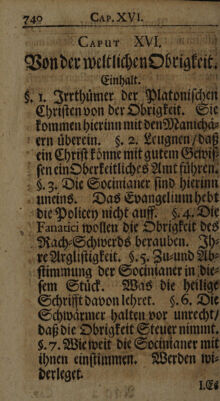 740 CAP. XVI.
CAPUT XVI.
Von der weltlichen Obrigkeit.
Einhalt.
§. 1. Irrthümer der Platonischen
Christen von der Obrigkeit. Sie
kommen hierinn mit den Manichä-
ern überein. §. 2. Leugnen/daß
ein Christ könne mit gutem Gewis-
sen ein Oberkeitliches Amt führen.
§. 3. Die Socinianer sind hierinn
uneins. Das Evangelium hebt
die Policey nicht auff. §. 4. Die
Fanatici wollen die Obrigkeit des
Rach-Schwerds berauben. Ih-
re Arglistigkeit. §. 5. Zu- und Ab-
stimmung der Socinianer in die-
sem Stück. Was die heilige
Schrifft davon lehret. §. 6. Die
Schwärmer halten vor unrecht/
daß die Obrigkeit Steuer nimmt.
§. 7. Wie weit die Socinianer mit
ihnen einstimmen. Werden wi-
derleget.
I. Es